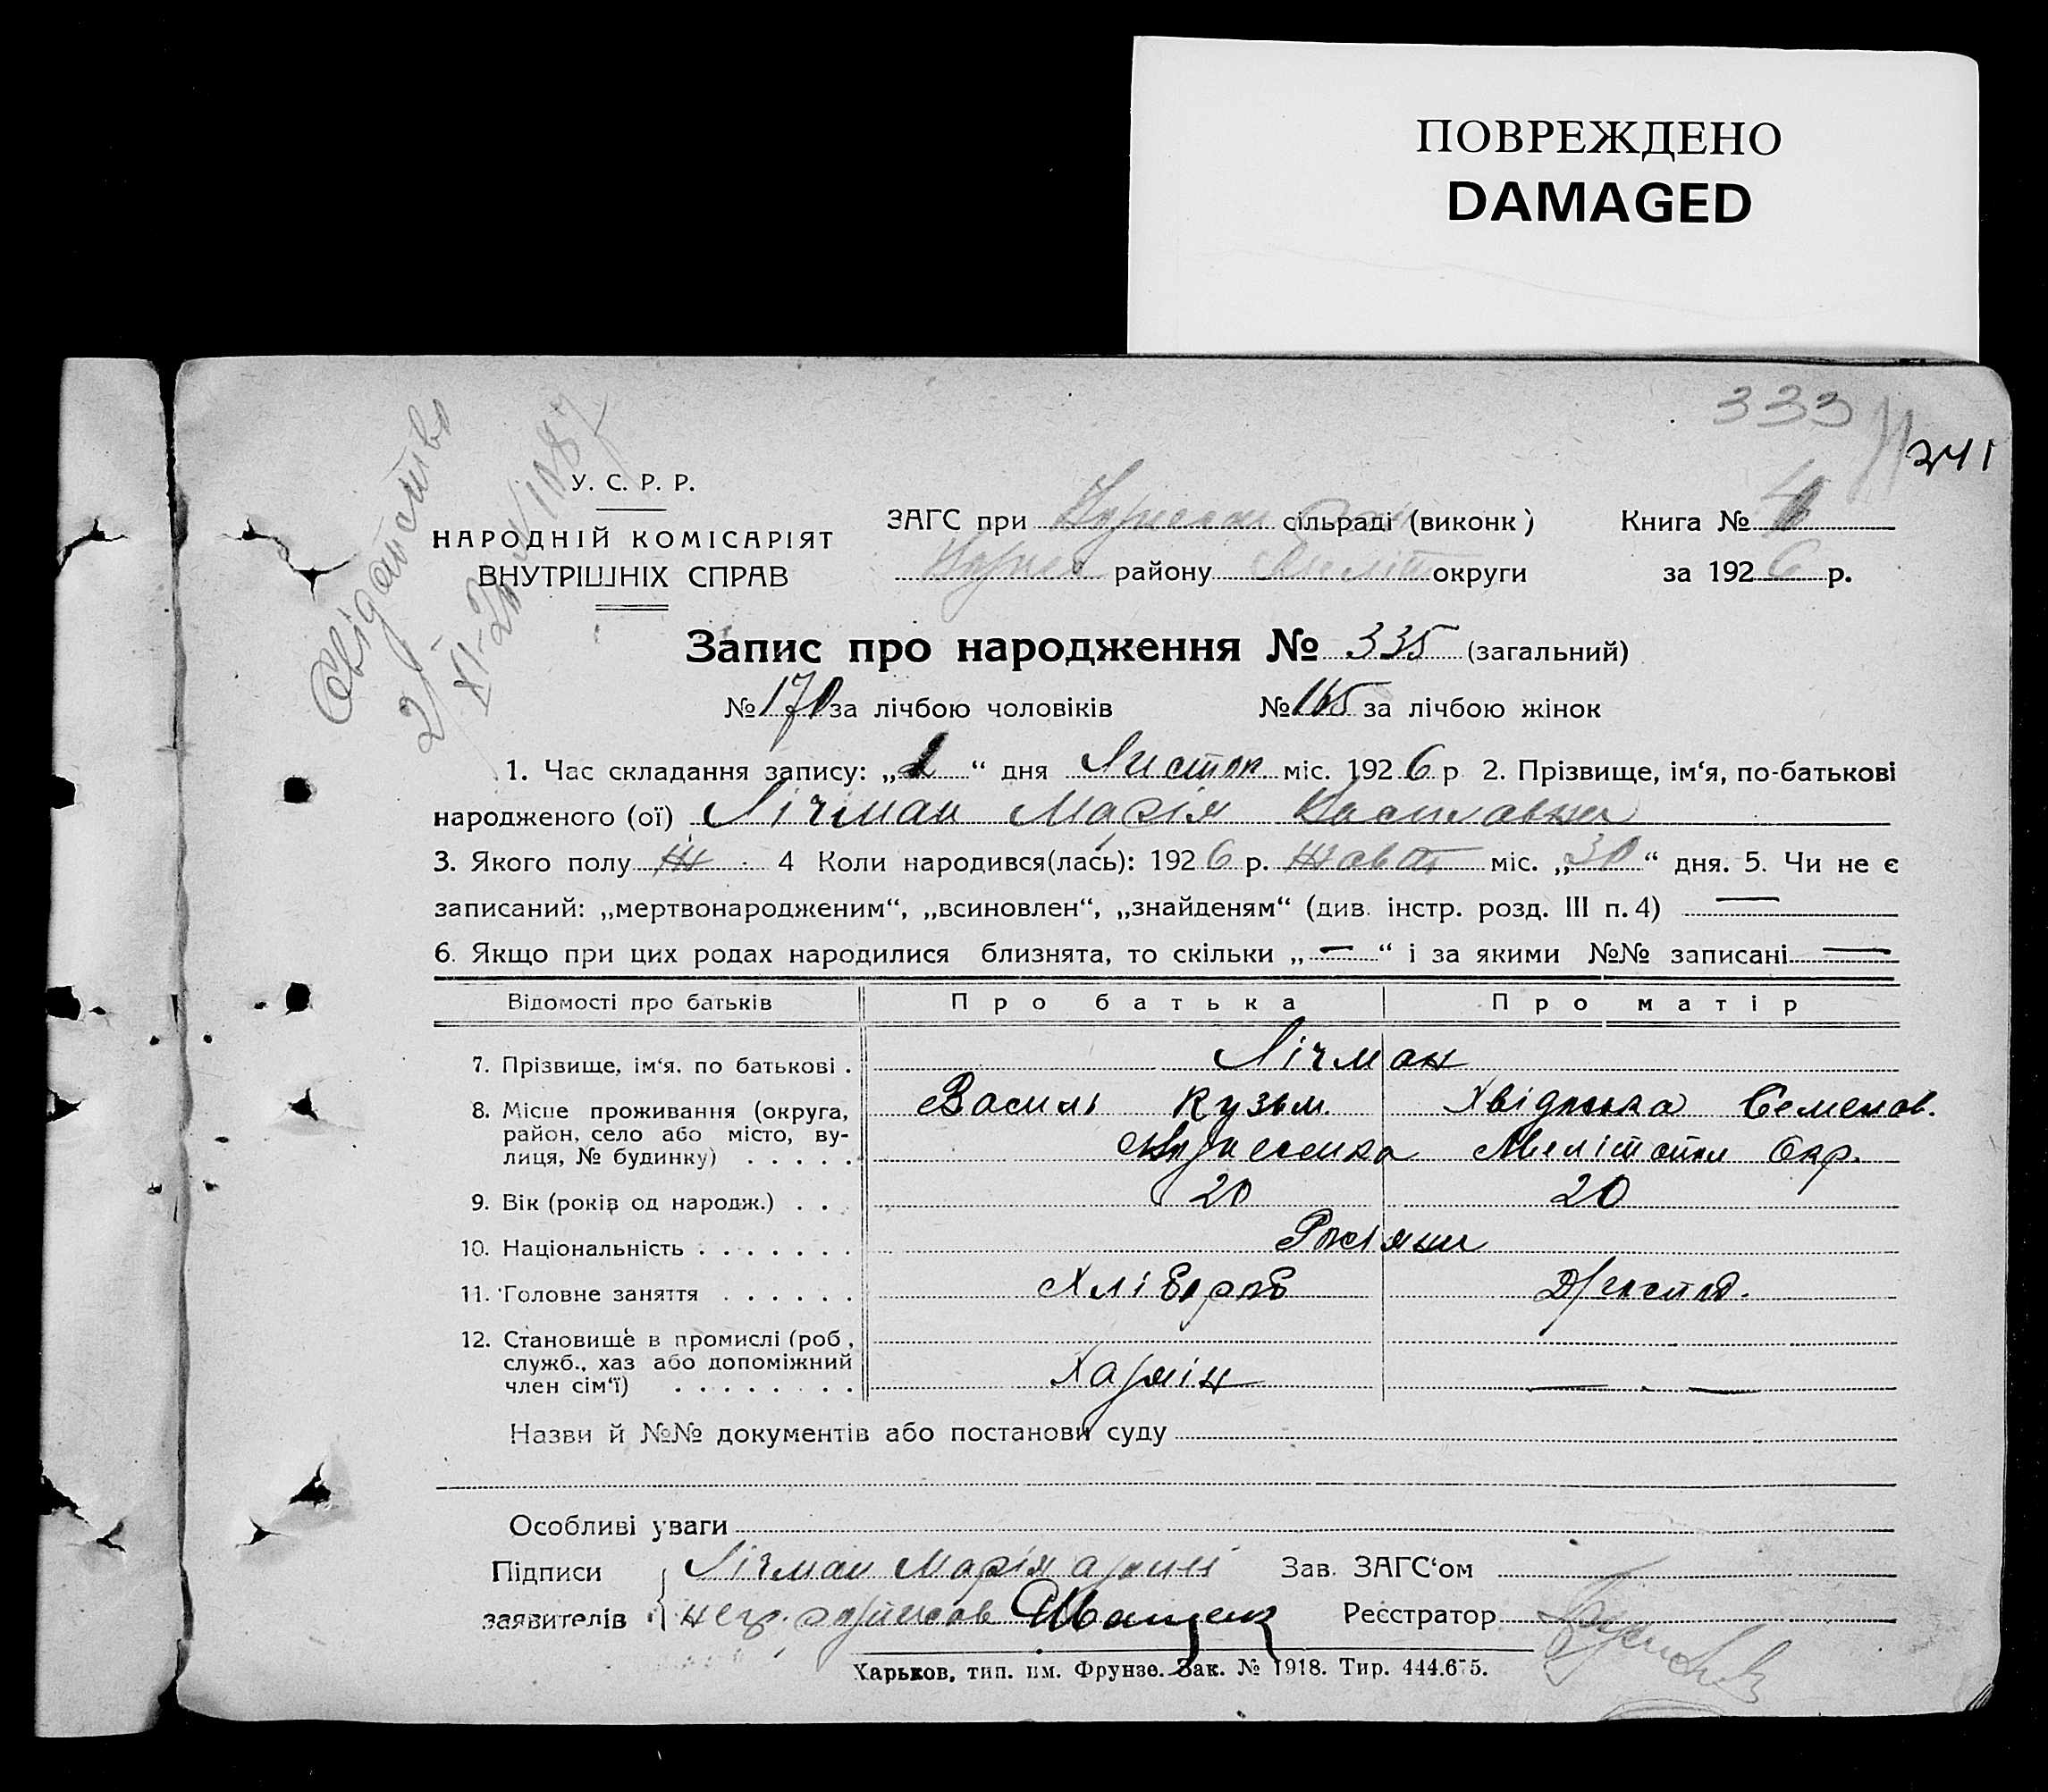 ПОВРЕЖДЕНО
DAMAGED
333
341
Свідоцтво
У. С. Р. Р.
НАРОДНІЙ КОМІСАРІЯТ
ВНУТРІШНІХ СПРАВ
ЗАГС при сільраді (виконк)
Книга №
району округи
за 1926 р.
Запис про народження № 335 (загальний)
№ 170 за лічбою чоловіків № 165 за лічбою жінок
1. Час складання запису: „ “ дня Листоп міс. 1926 р 2. Прізвище, ім‘я, по-батькові
народженого (ої) Лічман Марія Василівна
3. Якого полу Ж 4 Коли народився(лась): 1926 р. Жовт міс. „30“ дня. 5. Чи не є
записаний: „мертвонародженим“, „всиновлен“, „знайденям“ (див. інстр. розд. III п. 4) —
6. Якщо при цих родах народилися близнята, то скільки „—“ і за якими №№ записані —
Відомості про батьків Про батька Про матір
7. Прізвище, ім‘я. по батькові . Лічман
8. Місце проживання (округа, Василь Кузьм. Семенов.
район, село або місто, ву-
лиця, № будинку) . . . . . Окр.
9. Вік (років од народж.) . . . 20 20
10. Національність . . . . . . . Росіяни
11. Головне заняття . . . . . . Хлібороб
12. Становище в промислі (роб,
служб., хаз або допоміжний
член сім‘ї) . . . . . . . . — . —
Назви й №№ документів або постанови суду
Особливі уваги
Підписи Лічман Марія Зав. ЗАГС‘ом
заявителів Реєстратор
Харьков, тип. им. Фрунзе. Зак. № 1918. Тир. 444.675.